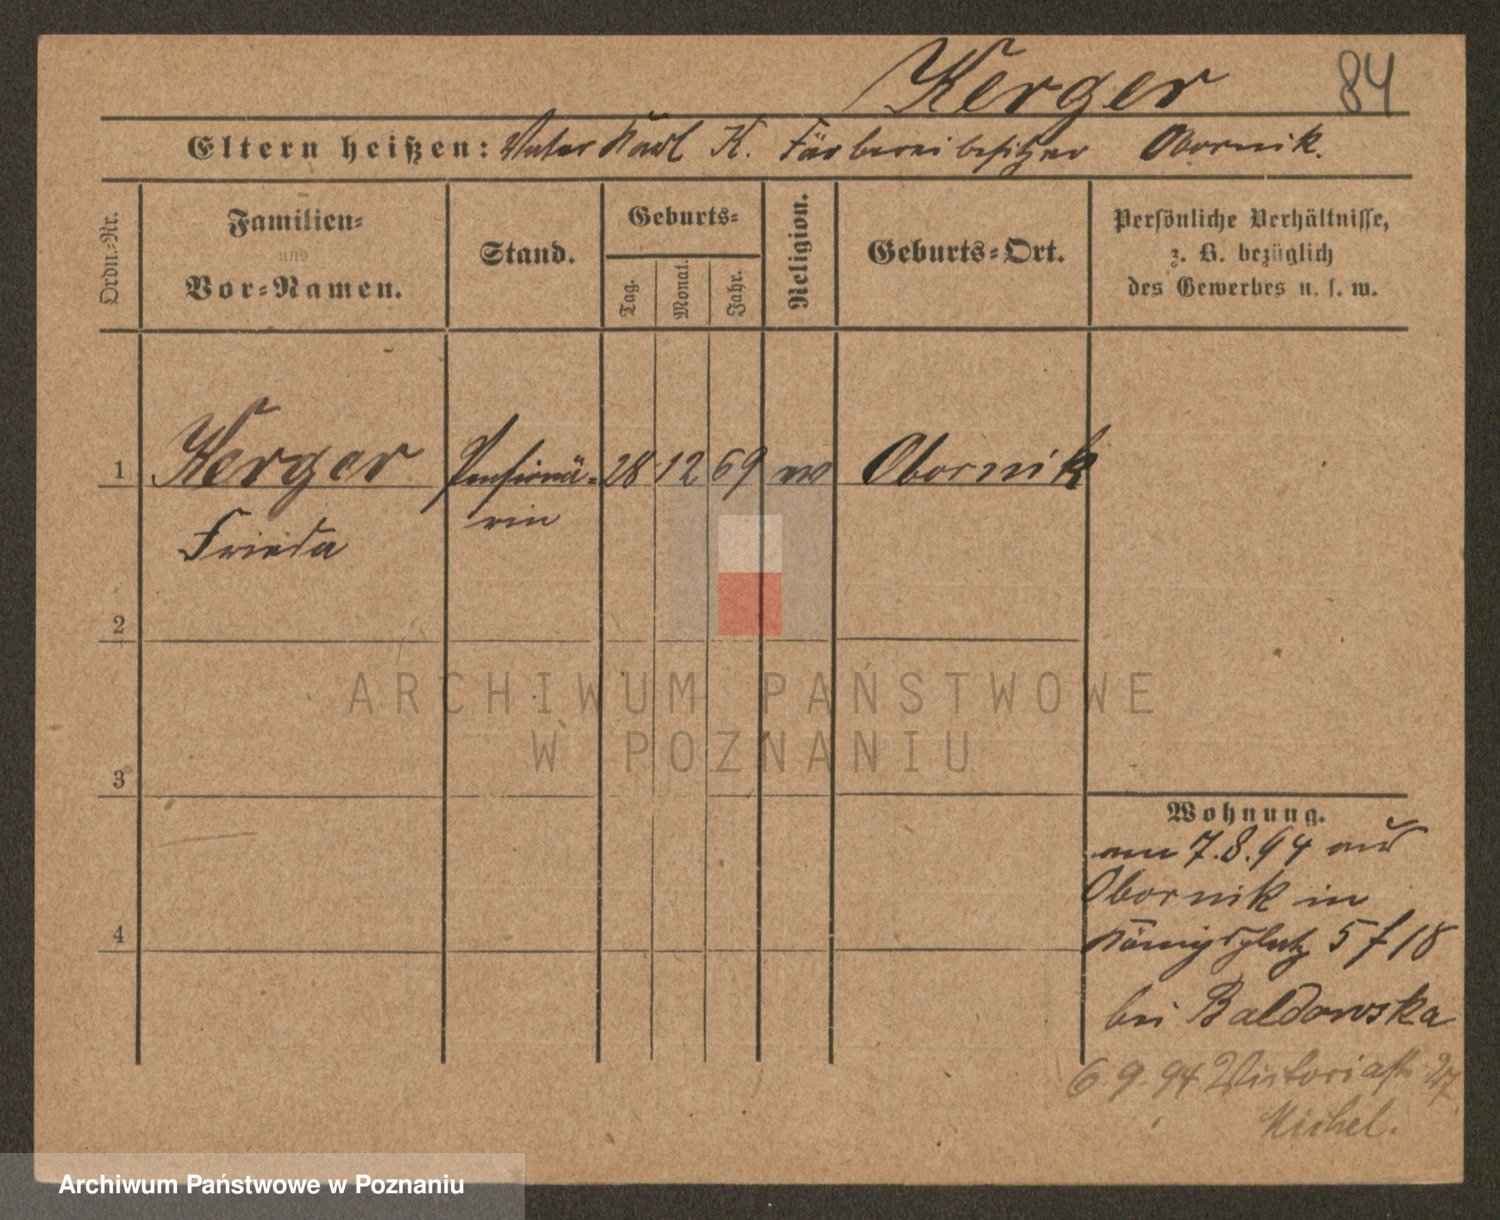 Kerger 84
Eltern heißen: Vater Karl K. Färbereibesitzer Obornik.
Ordn.-Nr.
Familien-
und
Vor-Namen.
Stand.
Geburts-
Tag.
Monat.
Jahr.
Religion.
Geburts-Ort.
Persönliche Verhältnisse,
z. B. bezüglich
des Gewerbes u. s. w.
1 Kerger Pensionä- 28 12 69 ev Obornik
Frieda rin
2
3
4
Wohnung.
am 7.8.94 aus
Obornik in
Königsplatz 5 f 18
bei Baldowska
6.9.94 Victoriastr. 27
Michel.
ARCHIWUM PAŃSTWOWE
W POZNANIU
Archiwum Państwowe w Poznaniu